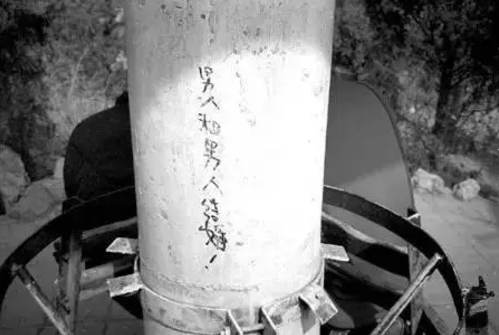 男人和男人结婚！